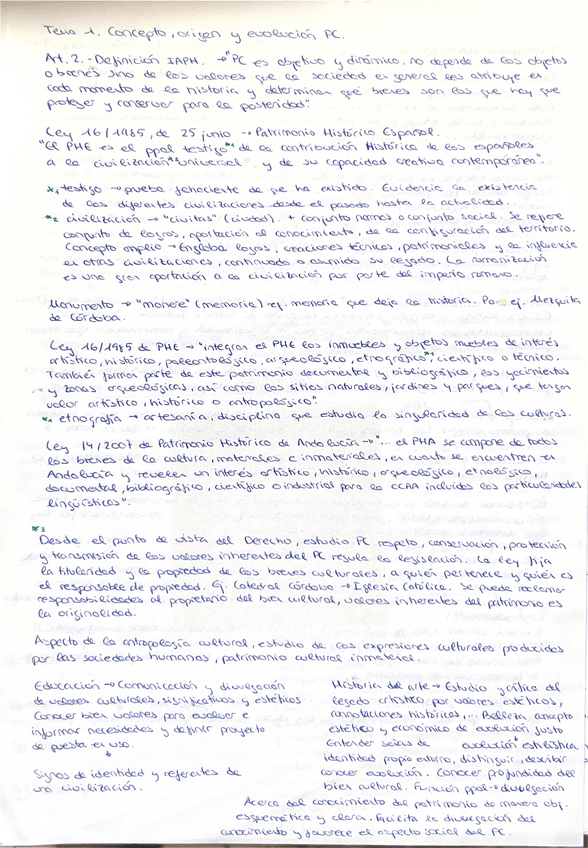 Tema 1. Concepto, origen y evolución PC.
Art. 2. - Definición IAPH. → "PC es objetivo y dinámico, no depende de los objetos
o bienes sino de los valores que la sociedad en general les atribuye en
cada momento de la historia y determinan qué bienes son los que hay que
proteger y conservar para la posteridad".
Ley 16/1985, de 25 junio → Patrimonio Histórico Español.
"El PHE es el ppal testigo*1 de la contribución Histórica de los españoles
a la civilización*2 universal y de su capacidad creativa contemporánea".
*1 testigo → prueba fehaciente de que ha existido. Evidencia la existencia
de las diferentes civilizaciones desde el pasado hasta la actualidad.
*2 civilización → "civitas" (ciudad). + conjunto normas o conjunto social. Se refiere
conjunto de logros, aportación al conocimiento, de la configuración del territorio.
Concepto amplio → Engloba logros, creaciones técnicas, patrimoniales y la influencia
en otras civilizaciones, continuado o asumido su legado. La romanización
es una gran aportación a la civilización por parte del imperio romano.
Monumento → "monere" (memoria) → ej. memoria que deja la historia. Por ej. Mezquita
de Córdoba.
Ley 16/1985 de PHE → "integran el PHE los inmuebles y objetos muebles de interés
artístico, histórico, paleontológico, arqueológico, etnográfico*1, científico o técnico.
También forman parte de este patrimonio documental y bibliográfico, los yacimientos
y zonas arqueológicas, así como los sitios naturales, jardines y parques, que tengan
valor artístico, histórico o antropológico".
*1 etnografía → artesanía, disciplina que estudia la singularidad de las culturas.
Ley 14/2007 de Patrimonio Histórico de Andalucía → "... el PHA se compone de todos
los bienes de la cultura, materiales e inmateriales, en cuanto se encuentren en
Andalucía y revelen un interés artístico, histórico, arqueológico, etnológico,
documental, bibliográfico, científico o industrial para la CCAA incluidas las particularidades
lingüísticas".
*3
Desde el punto de vista del Derecho, estudio PC respeto, conservación, protección
y transmisión de los valores inherentes del PC regula la legislación. La ley fija
la titularidad y la propiedad de los bienes culturales, a quién pertenece y quién es
el responsable de propiedad. Ej. Catedral Córdoba → Iglesia Católica. Se puede reclamar
responsabilidades al propietario del bien cultural, valores inherentes del patrimonio es
la originalidad.
Aspecto de la antropología cultural, estudio de las expresiones culturales producidas
por las sociedades humanas, patrimonio cultural inmaterial.
Educación → Comunicación y divulgación
de valores culturales, significativos y estéticos
Conocer bien valores para evaluar e
informar necesidades y definir proyecto
de puesta en uso.
↓
Signos de identidad y referentes de
una civilización.
Historia del arte → Estudio y crítica del
legado artístico por valores estéticos,
connotaciones históricas,... Belleza concepto
estético y económico de evolución justo
Entender señas de evolución estilística
identidad propia externo, distinguir, describir
conocer evolución. Conocer profundidad del
bien cultural. Función ppal → divulgación
Acerca del conocimiento del patrimonio de manera obj.
esquemático y clara. Facilita la divulgación del
conocimiento y favorece el aspecto social del PC.